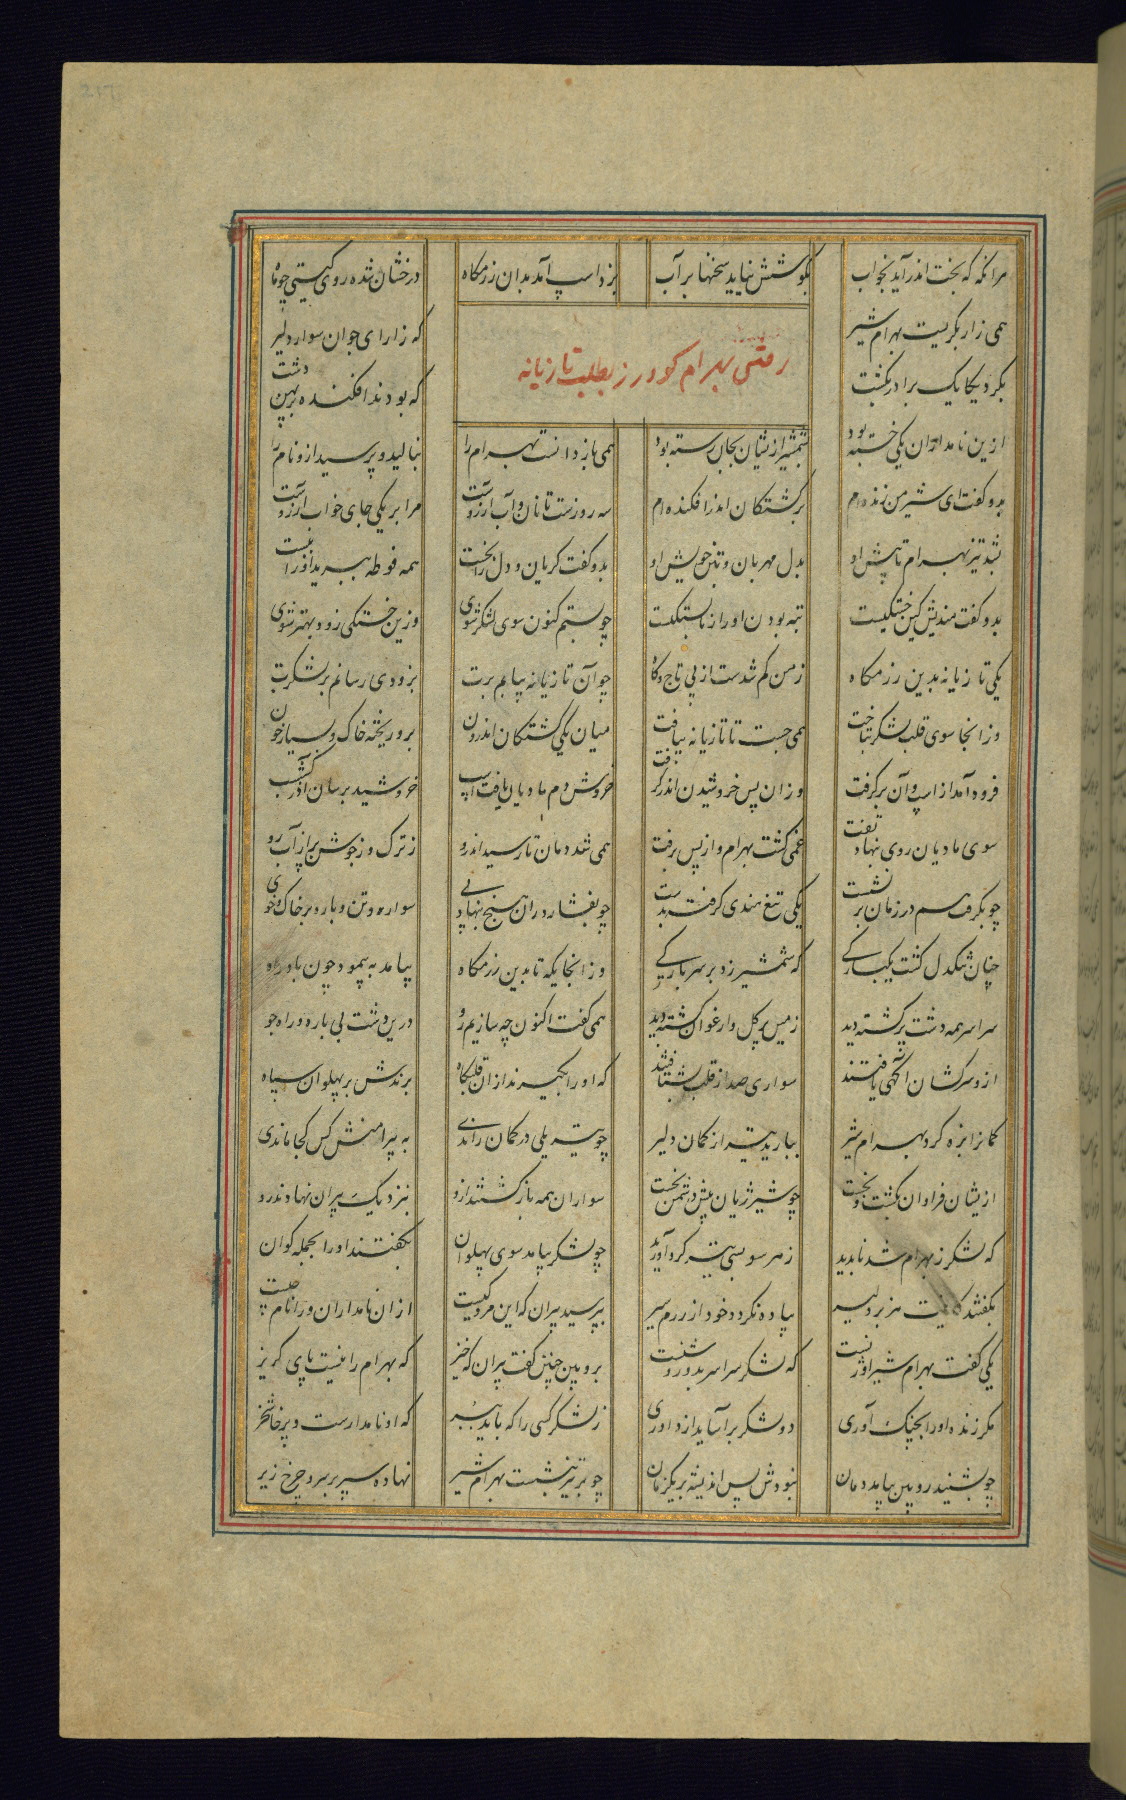 217
مرانکه که بخت اندر آید بخواب بکوشش نیاید سخنها بر آب بزد اسپ آمد بدان رزمکاه درخشان شده روی کیتی چو ماه
رفتن بهرام کودرز بطلب تازیانه
همی زار بکریست بهرام شیر که زارا ی جوان سوار دلیر
بکرد یکایک برادر بکشت که بودند افکنده بر پهن دشت
ازین نامداران یکی خسته بود بشمشیر ازیشان بجان رسته بود همی بازدانست بهرام را بنالید و پرسید ازو نام را
بدو کفت ای شیر من زنده ام بر کشتکان اندر افکنده ام سه روزست تا نان و آب آرزوست مرا بر یکی جای خواب آرزوست
بشد تیز بهرام تا پیش او بدل مهربان و بتن خویش او بدو کفت کریان و دل را بخست همه فوطه ببرید او را ببست
بدو کفت مندیش کین خستکیست تبه بودن او را ز نابستکیست چو بستم کنون سوی لشکر شوی وزین خستکی زود بهتر شوی
یکی تازیانه بدین رزمکاه ز من کم شدست از پی تاج و کاه چو آن تازیانه بیابم برت بزودی رسانم بر لشکرت
وزانجا سوی قلب لشکر بتاخت همی جست تا تازیانه بیافت میان یکی کشتکان اندرون برو ریخته خاک و بسیار خون
فرود آمد از اسپ و آن برکرفت وزان پس خروشیدن اندر کرفت خروش دم مادیان یافت اسپ خروشید برسان آذرکشسب
سوی مادیان روی بنهاد تفت غمی کشت بهرام و از پس برفت همی شد دمان تا رسید اندرو ز ترک و ز جوشن پر از آب رو
چو بکرفت هم در زمان برنشست یکی تیغ هندی کرفته بدست چو بفشارد ران هیچ ننهاد پی سواره و تن و باره پر خاک و خوی
چنان تنکدل کشت یکبارکی که شمشیر زد بر سر بارکی وزانجایکه تا بدین رزمکاه پیامد به پیمود چون باد راه
سراسر همه دشت پر کشته دید زمین پر کل و ارغوان کشته دید همی کفت اکنون چه سازیم رو درین دشت بی باره و راه جو
ازو سرکشان آکهی یافتند سواری صد از قلب بشتافتند که او را بکیرند از ان قلبکاه برندش بر پهلوان سپاه
کمانرا بزه کرد بهرام شیر ببارید تیر از کمان دلیر چو تیر یلی در کمان راندی به پیرامنش کس کجا ماندی
ازیشان فراوان بکشت و بخست چو شیر ژیان پیش دشمن نجست سواران همه بازکشتند ازو بنزدیک پیران نهادند رو
که لشکر ز بهرام شد ناپدید ز هر سو بسی تیر کرد آورید چو لشکر بیامد سوی پهلوان بکفتند او را بجمله کوان
بکفتند کاینت هزبر دلیر پیاده نکردد خود از رزم سیر بپرسید پیران که این مرد کیست ازان نامداران ورا نام چیست
یکی کفت بهرام شیراوژنست که لشکر سراسر بدو روشنست برویین چنین کفت پیران که خیز که بهرام را نیست پای کریز
مکر زنده او را بچنک آوری دو لشکر برآساید از داوری ز لشکر کسی را که باید ببر که او نامدارست و پرخاشخر
چو بشنید رویین بیامد دمان نبودش پس اندیشه بر یکزمان چو بر تیر بنشست بهرام شیر نهاده سپر بر سر و چرخ زیر